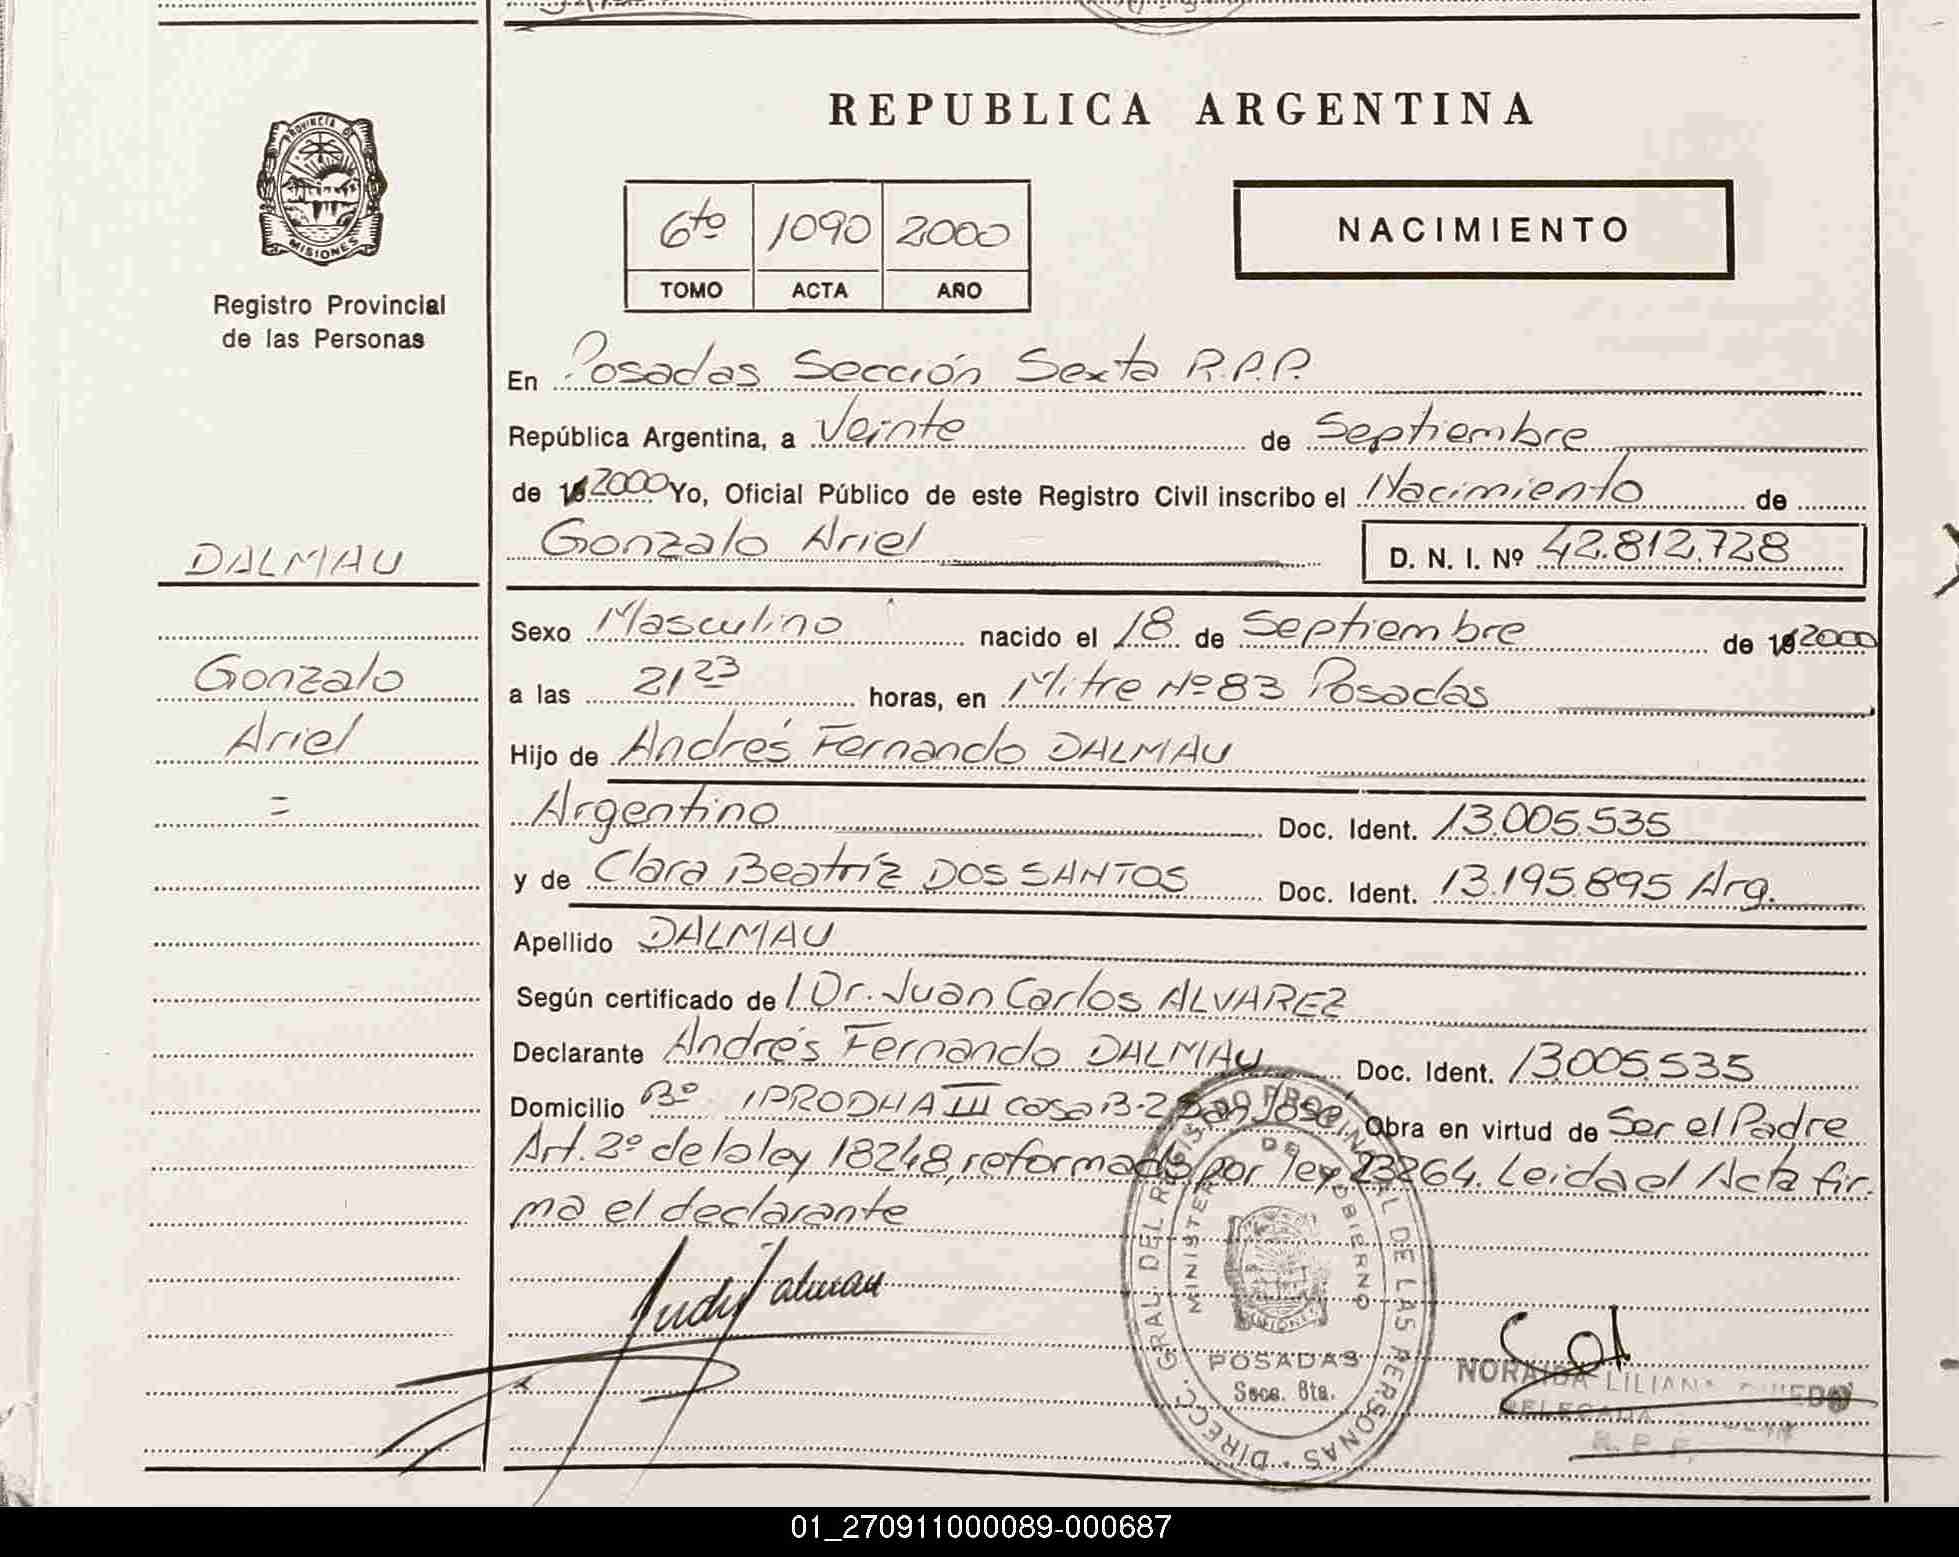 REPUBLICA ARGENTINA
PROVINCIA DE
MISIONES
Registro Provincial
de las Personas
6to 1090 2000
TOMO ACTA AÑO
NACIMIENTO
En Posadas Sección Sexta R.P.P.
República Argentina, a Veinte de Septiembre
de 2000 Yo, Oficial Público de este Registro Civil inscribo el Nacimiento de
Gonzalo Ariel D. N. I. Nº 42.812.728
DALMAU
Gonzalo
Ariel
=
Sexo Masculino nacido el 18 de Septiembre de 2000
a las 21 23 horas, en Mitre Nº 83 Posadas
Hijo de Andrés Fernando DALMAU
Argentino Doc. Ident. 13.005.535
y de Clara Beatriz DOS SANTOS Doc. Ident. 13.195.895 Arg.
Apellido DALMAU
Según certificado de Dr. Juan Carlos ALVAREZ
Declarante Andrés Fernando DALMAU Doc. Ident. 13.005.535
Domicilio Bº IPRODHA III casa 13-2 San José Obra en virtud de Ser el Padre
Art. 2º de la ley 18248, reformado por ley 23264. Leida el Acta fir-
ma el declarante
DIRECC. GRAL. DEL REGISTRO PROVINCIAL DE LAS PERSONAS
MINISTERIO DE GOBIERNO
MISIONES
POSADAS
Secc. 6ta.
NORAIDA LILIANA
DELEGADA
01_270911000089-000687